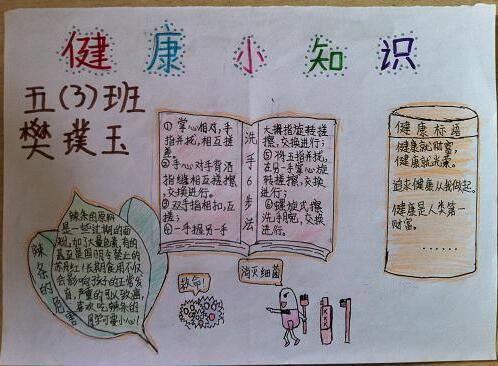 健康小知识
五(3)班
樊璞玉
洗手6步法
① 掌心相对,手
指并拢,相互搓
擦
② 手心对手背沿
指缝相互搓擦,
交换进行;
③ 双手指相扣,互
搓;
④ 一手握另一手
大拇指旋转搓
擦,交换进行;
⑤ 将五指并拢,
在另一手掌心旋
转搓擦,交换
进行;
⑥ 螺旋式擦
洗手腕,交换
进行。
健康标语
健康就财富,
健康就光荣。
追求健康从我做起。
健康是人类第一
财富。
……
辣条的危害
辣条的原料
是一些过期的面
粉,加了大量色素,有的
甚至是国明令禁止的
苏丹红!长期食用不仅
会影响孩子的正常发
育,严重的可以致癌,
喜欢吃辣条的
同学可要小心!
救命!
消灭细菌